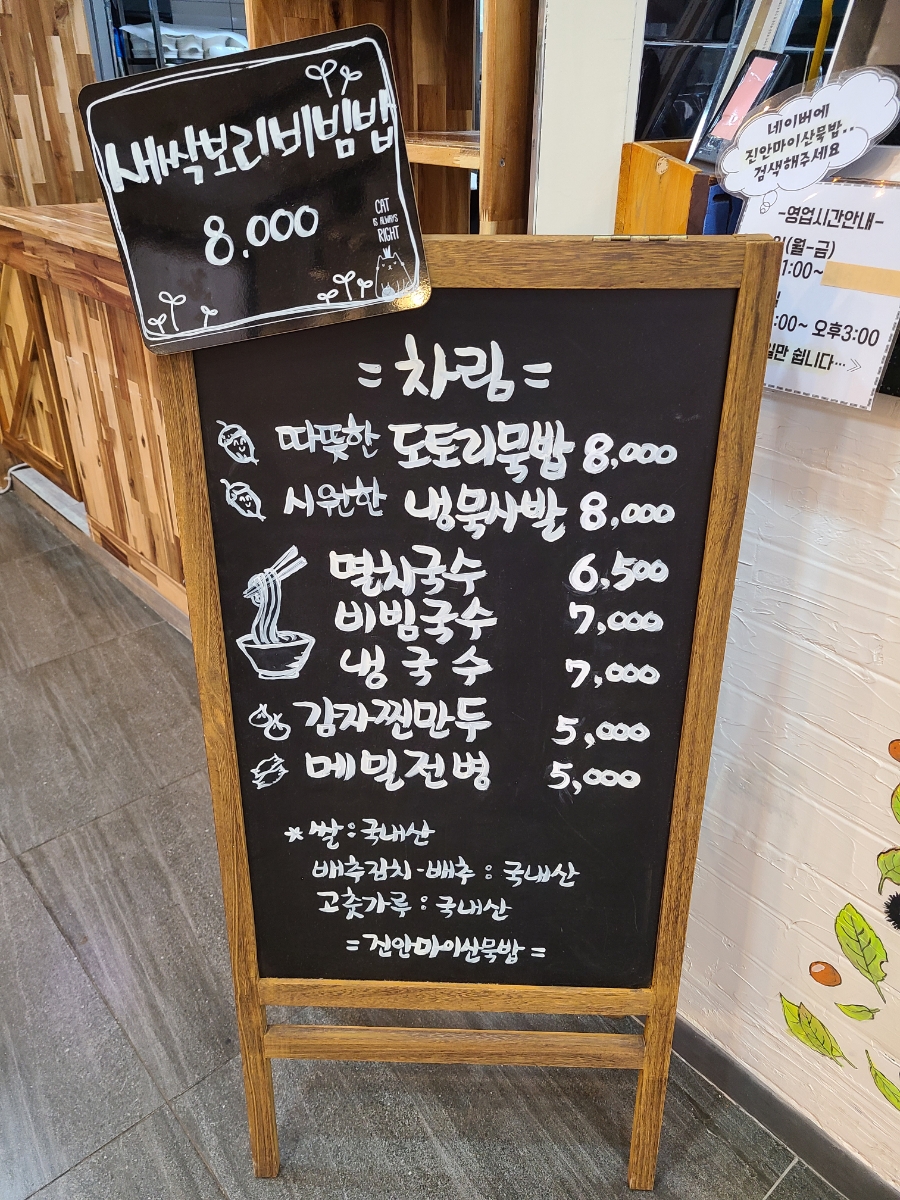 새싹보리비빔밥
8,000
CAT
IS ALWAYS
RIGHT
네이버에
진안마이산묵밥..
검색해주세요
-영업시간안내-
(월-금)
1:00~
:00~ 오후3:00
만 쉽니다…》
=차림=
따뜻한 도토리묵밥 8,000
시원한 냉묵사발 8,000
멸치국수 6,500
비빔국수 7,000
냉국수 7,000
감자찐만두 5,000
메밀전병 5,000
* 쌀 : 국내산
배추김치 - 배추 : 국내산
고춧가루 : 국내산
= 진안마이산묵밥 =